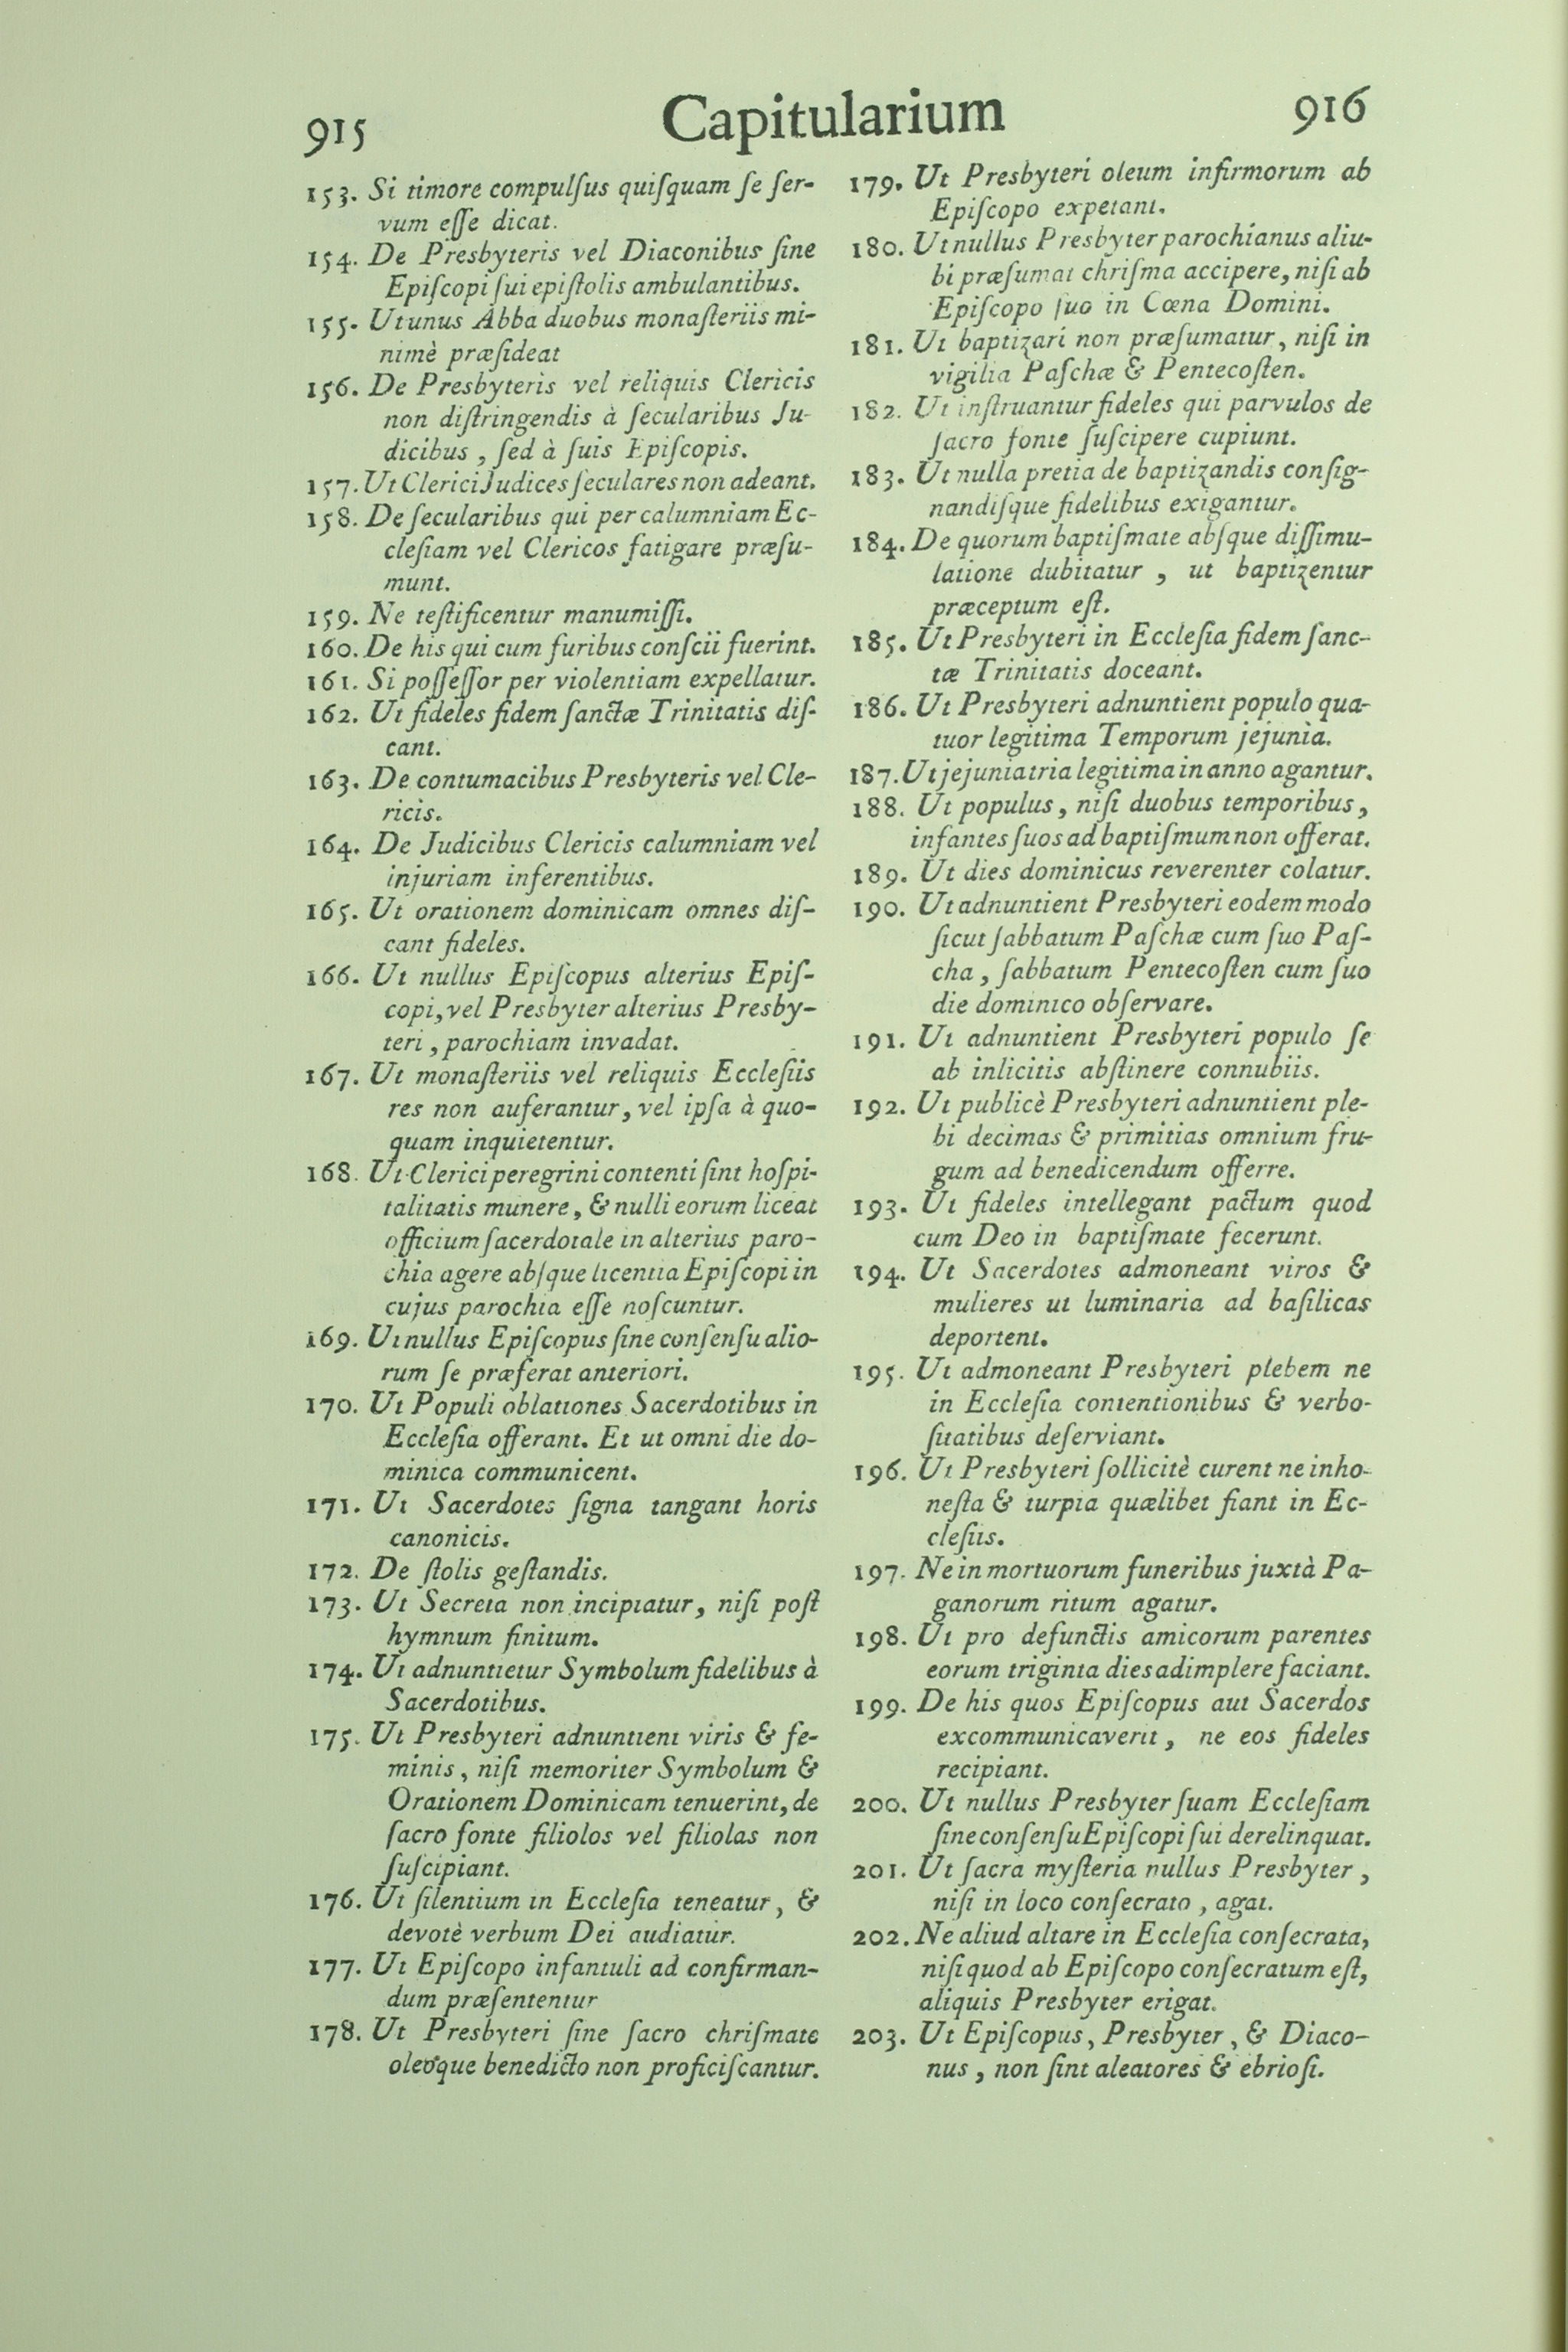 915
Capitularium
916
153. Si timore compulſus quiſquam ſe ſer-
vum eſſe dicat.
154. De Presbyteris vel Diaconibus ſine
Epiſcopi ſui epiſtolis ambulantibus.
155. Ut unus Abba duobus monaſteriis mi-
nimè præſideat
156. De Presbyteris vel reliquis Clericis
non diſtringendis à ſecularibus Ju-
dicibus, ſed à ſuis Epiſcopis.
157. Ut Clerici Judices ſeculares non adeant.
158. De ſecularibus qui per calumniam Ec-
cleſiam vel Clericos fatigare præſu-
munt.
159. Ne teſtificentur manumiſſi.
160. De his qui cum furibus conſcii fuerint.
161. Si poſſeſſor per violentiam expellatur.
162. Ut fideles fidem ſanctæ Trinitatis diſ-
cant.
163. De contumacibus Presbyteris vel Cle-
ricis.
164. De Judicibus Clericis calumniam vel
injuriam inferentibus.
165. Ut orationem dominicam omnes diſ-
cant fideles.
166. Ut nullus Epiſcopus alterius Epiſ-
copi, vel Presbyter alterius Presby-
teri, parochiam invadat.
167. Ut monaſteriis vel reliquis Eccleſiis
res non auferantur, vel ipſa à quo-
quam inquietentur.
168. Ut Clerici peregrini contenti ſint hoſpi-
talitatis munere, & nulli eorum liceat
officium ſacerdotale in alterius paro-
chia agere abſque licentia Epiſcopi in
cujus parochia eſſe noſcuntur.
169. Ut nullus Epiſcopus ſine conſenſu alio-
rum ſe præferat anteriori.
170. Ut Populi oblationes Sacerdotibus in
Eccleſia offerant. Et ut omni die do-
minica communicent.
171. Ut Sacerdotes ſigna tangant horis
canonicis.
172. De ſtolis geſtandis.
173. Ut Secreta non incipiatur, niſi poſt
hymnum finitum.
174. Ut adnuntietur Symbolum fidelibus à
Sacerdotibus.
175. Ut Presbyteri adnuntient viris & fe-
minis, niſi memoriter Symbolum &
Orationem Dominicam tenuerint, de
ſacro fonte filiolos vel filiolas non
ſuſcipiant.
176. Ut ſilentium in Eccleſia teneatur, &
devotè verbum Dei audiatur.
177. Ut Epiſcopo infantuli ad confirman-
dum præſententur
178. Ut Presbyteri ſine ſacro chriſmate
oleoque benedicto non proficiſcantur.
179. Ut Presbyteri oleum infirmorum ab
Epiſcopo expetant.
180. Ut nullus Presbyter parochianus aliu-
bi præſumat chriſma accipere, niſi ab
Epiſcopo ſuo in Cœna Domini.
181. Ut baptizari non præſumatur, niſi in
vigilia Paſchæ & Pentecoſten.
182. Ut inſtruantur fideles qui parvulos de
ſacro fonte ſuſcipere cupiunt.
183. Ut nulla pretia de baptizandis conſig-
nandiſque fidelibus exigantur.
184. De quorum baptiſmate abſque diſſimu-
latione dubitatur, ut baptizentur
præceptum eſt.
185. Ut Presbyteri in Eccleſia fidem ſanc-
tæ Trinitatis doceant.
186. Ut Presbyteri adnuntient populo qua-
tuor legitima Temporum jejunia.
187. Ut jejunia tria legitima in anno agantur.
188. Ut populus, niſi duobus temporibus,
infantes ſuos ad baptiſmum non offerat.
189. Ut dies dominicus reverenter colatur.
190. Ut adnuntient Presbyteri eodem modo
ſicut ſabbatum Paſchæ cum ſuo Paſ-
cha, ſabbatum Pentecoſten cum ſuo
die dominico obſervare.
191. Ut adnuntient Presbyteri populo ſe
ab inlicitis abſtinere connubiis.
192. Ut publicè Presbyteri adnuntient ple-
bi decimas & primitias omnium fru-
gum ad benedicendum offerre.
193. Ut fideles intellegant pactum quod
cum Deo in baptiſmate fecerunt.
194. Ut Sacerdotes admoneant viros &
mulieres ut luminaria ad baſilicas
deportent.
195. Ut admoneant Presbyteri plebem ne
in Eccleſia contentionibus & verbo-
ſitatibus deſerviant.
196. Ut Presbyteri ſollicitè curent ne inho-
neſta & turpia quælibet fiant in Ec-
cleſiis.
197. Ne in mortuorum funeribus juxtà Pa-
ganorum ritum agatur.
198. Ut pro defunctis amicorum parentes
eorum triginta dies adimplere faciant.
199. De his quos Epiſcopus aut Sacerdos
excommunicaverit, ne eos fideles
recipiant.
200. Ut nullus Presbyter ſuam Eccleſiam
ſine conſenſu Epiſcopi ſui derelinquat.
201. Ut ſacra myſteria nullus Presbyter,
niſi in loco conſecrato, agat.
202. Ne aliud altare in Eccleſia conſecrata,
niſi quod ab Epiſcopo conſecratum eſt,
aliquis Presbyter erigat.
203. Ut Epiſcopus, Presbyter, & Diaco-
nus, non ſint aleatores & ebrioſi.